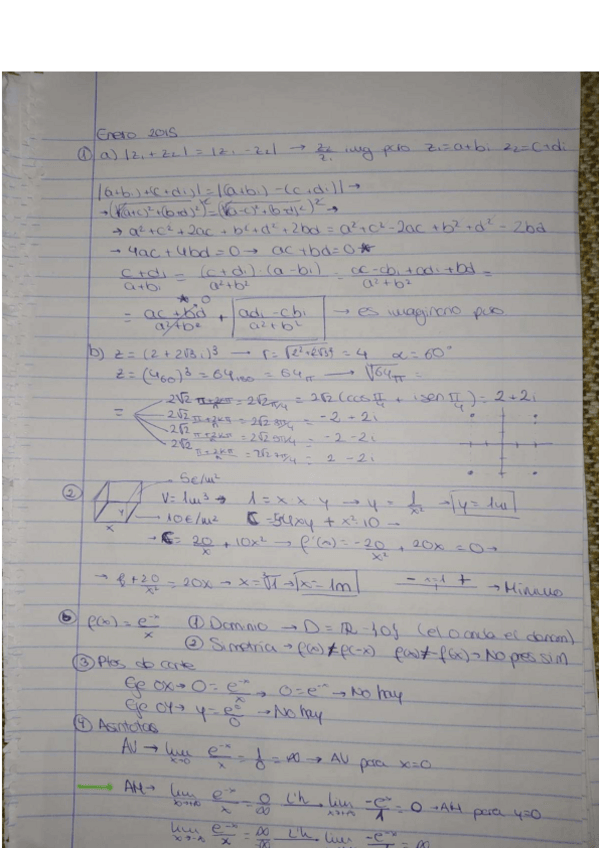 Enero 2015
① a) |z₁ + z₂| = |z₁ - z₂| → z₂/z₁ img puro z₁=a+bi z₂=c+di
|(a+bi)+(c+di)| = |(a+bi) - (c+di)| →
→ (√(a+c)²+(b+d)²)² = (√(a-c)²+(b-d)²)² →
→ a²+c²+2ac+b²+d²+2bd = a²+c²-2ac+b²+d²-2bd
→ 4ac+4bd=0 → ac+bd=0 *
c+di/a+bi = (c+di)·(a-bi)/a²+b² = ac-cbi+adi+bd/a²+b² =
= ac+bd/a²+b² + adi-cbi/a²+b² → es imaginario puro
b) z = (2+2√3i)³ → r = √2²+2√3² = 4 α=60°
z = (4₆₀)³ = 64₁₈₀ = 64π → ⁴√64π =
2√2 π+2kπ/4 = 2√2 π/4 = 2√2 (cos π/4 + i sen π/4) = 2+2i
= 2√2 π+2kπ/4 = 2√2 3π/4 = -2+2i
2√2 π+2kπ/4 = 2√2 5π/4 = -2-2i
2√2 π+2kπ/4 = 2√2 7π/4 = 2-2i
② 5€/m²
V=1m³ → 1 = x x y → y = 1/x² → y=1m
y 10€/m² C=5·4xy + x²·10 →
x
→ C = 20/x + 10x² → f'(x) = -20/x² + 20x = 0 →
→ 20/x² = 20x → x = ³√1 → x=1m - x=1 + → Mínimo
⑥ f(x) = e⁻ˣ/x ① Dominio → D = ℝ - {0} (el 0 anula el denom)
② Simetría → f(x)≠f(-x) f(x)≠-f(x) → No pres sim
③ Ptos de corte
Eje OX → 0 = e⁻ˣ/x → 0=e⁻ˣ → No hay
Eje OY → y = e⁰/0 → No hay
④ Asíntotas
AV → lim x→0 e⁻ˣ/x = 1/0 = ∞ → AV para x=0
AH → lim x→+∞ e⁻ˣ/x = 0/∞ L'h lim x→+∞ -e⁻ˣ/1 = 0 → AH para y=0
lim x→-∞ e⁻ˣ/x = ∞/-∞ L'h lim -e⁻ˣ/1 = ∞